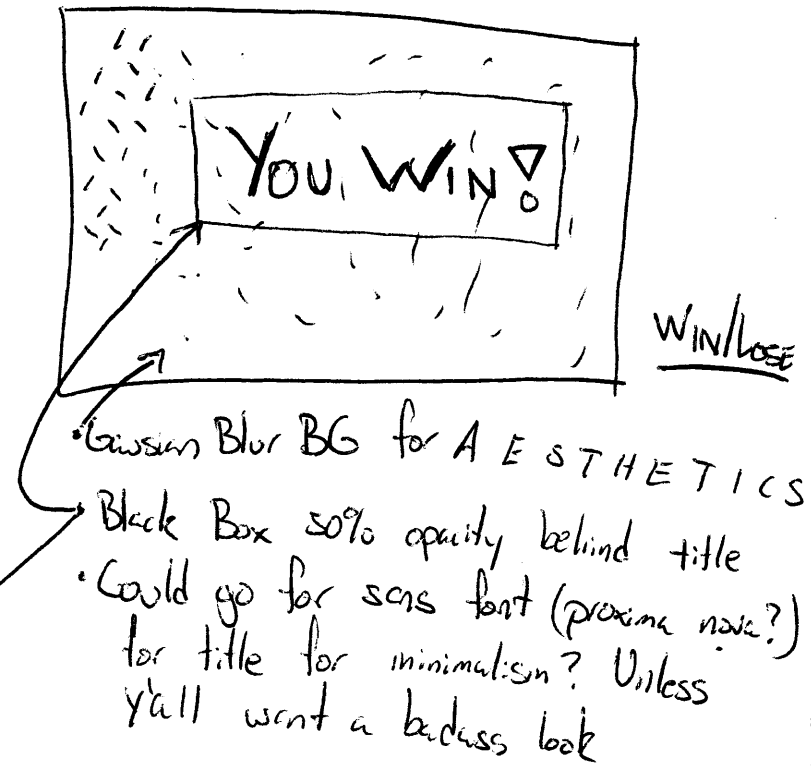 YOU WIN!
WIN/LOSE
• Gausian Blur BG for A E S T H E T I C S
• Black Box 50% opacity behind title
• Could go for sans font (proxima nova?)
for title for minimalism? Unless
y'all want a badass look